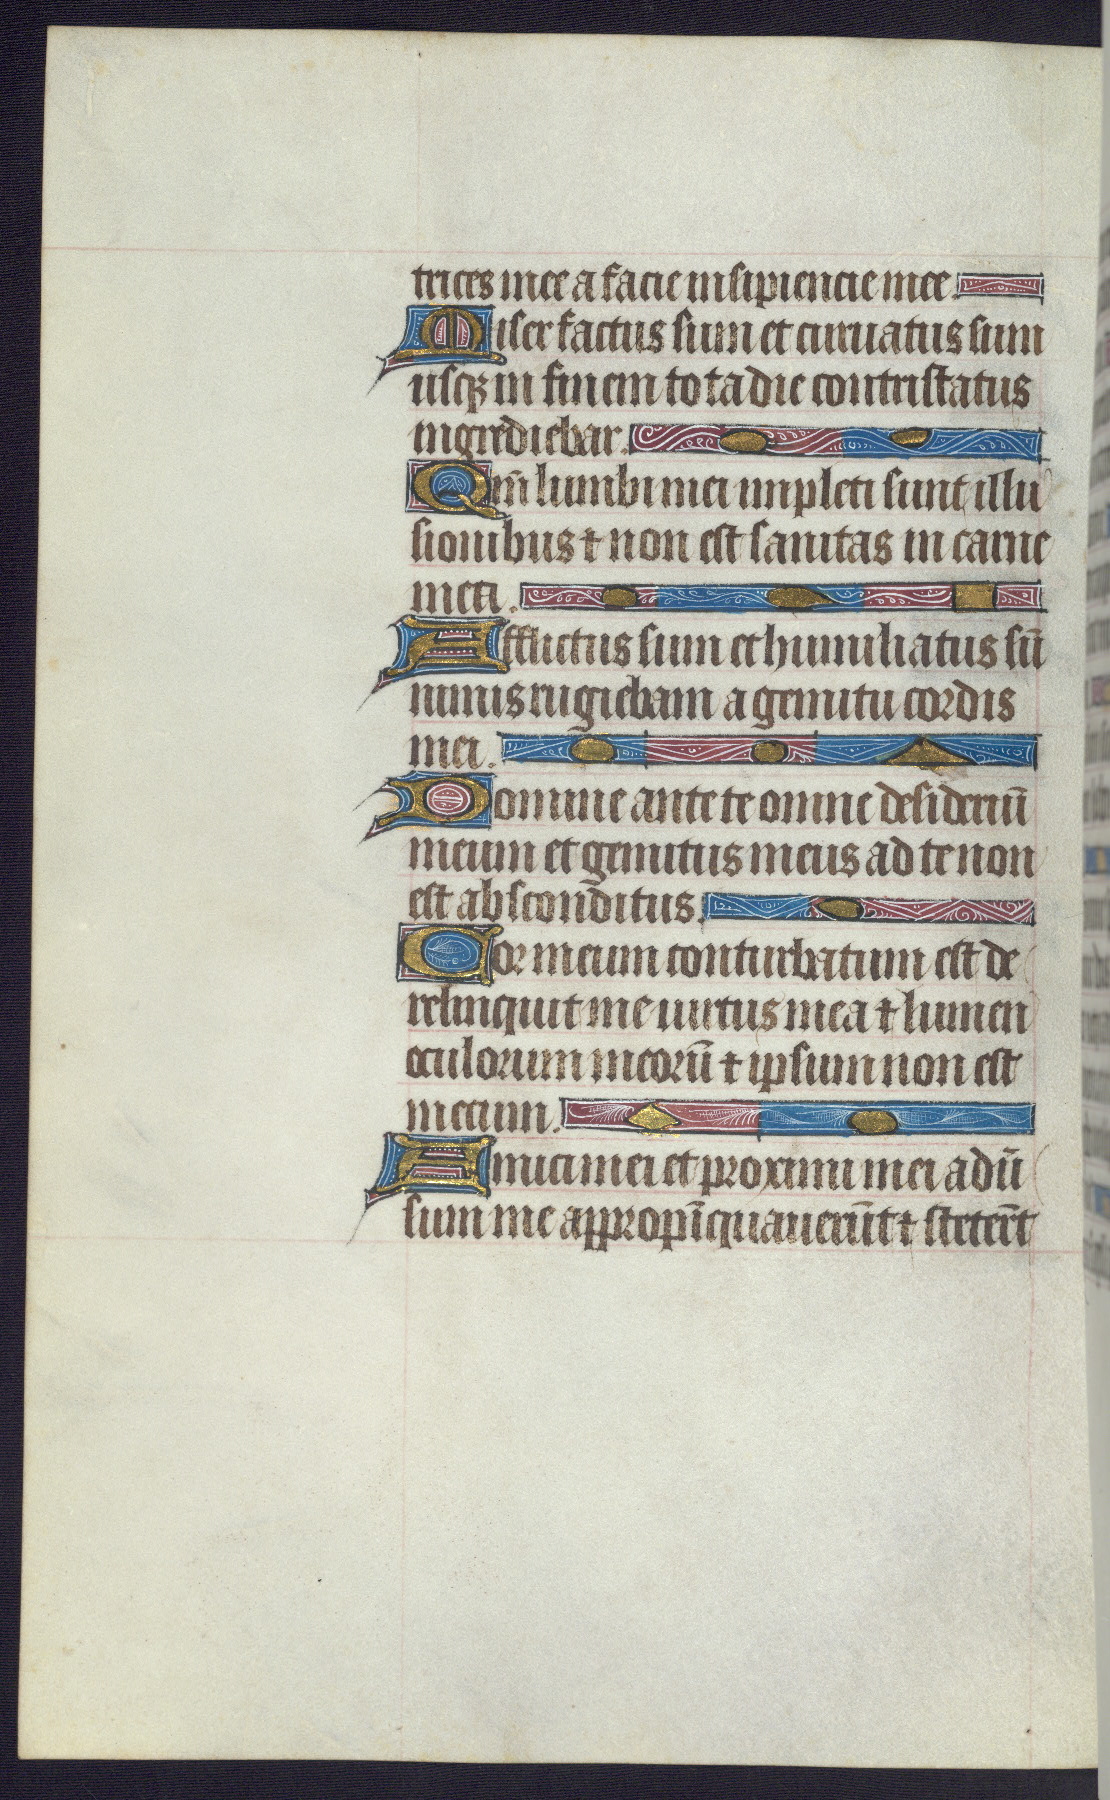 trices mee a facie insipiencie mee.
Miser factus sum et curuatus sum
usqꝫ in finem tota die contristatus
ingrediebar.
Qm̄ lumbi mei impleti sunt illu
sionibus ⁊ non est sanitas in carne
mea.
Afflictus sum et humiliatus sū
nimis rugiebam a gemitu cordis
mei.
Domine ante te omne desideriū
meum et gemitus meus ad te non
est absconditus.
Cor meum conturbatum est de
relinquit me uirtus mea ⁊ lumen
oculorum meorū ⁊ ipsum non est
mecum.
Amici mei et proximi mei adū
sum me appropīquauerūt ⁊ steterūt